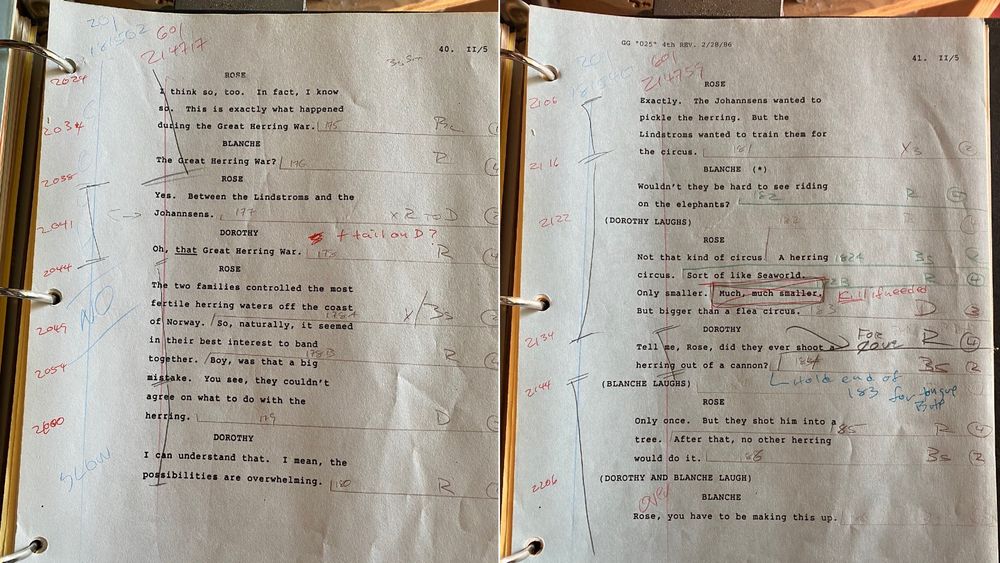 201
181502
601
214717
40. II/5
2024
ROSE
I think so, too. In fact, I know
so. This is exactly what happened
2034
during the Great Herring War. 175
BLANCHE
R
The Great Herring War? 176
2038
ROSE
Yes. Between the Lindstroms and the
2041
Johannsens. 177 X R TO D
DOROTHY
+ tail on D?
Oh, that Great Herring War. 178 R
2044
ROSE
The two families controlled the most
fertile herring waters off the coast
NO
178A X/Bs
2049
of Norway. So, naturally, it seemed
in their best interest to band
178B R
2054
together. Boy, was that a big
mistake. You see, they couldn't
agree on what to do with the
2060
herring. 179 D
DOROTHY
SLOW
I can understand that. I mean, the
possibilities are overwhelming. 180 R
GG "025" 4th REV. 2/28/86
201
601
214759
41. II/5
ROSE
2106
Exactly. The Johannsens wanted to
pickle the herring. But the
Lindstroms wanted to train them for
the circus. 181 X3 2
2116
BLANCHE (*)
Wouldn't they be hard to see riding
on the elephants? 182 R
2122
(DOROTHY LAUGHS)
ROSE
Not that kind of circus. A herring 182A Bs
circus. Sort of like Seaworld. R
Only smaller. Much, much smaller. Kill if needed
But bigger than a flea circus. 183 D 3
2134
DOROTHY
FOR
Tell me, Rose, did they ever shoot a R 4
herring out of a cannon? 184 Bs 2
2144
(BLANCHE LAUGHS)
Hold end of
183 for tongue
ROSE
Only once. But they shot him into a 185 R 4
tree. After that, no other herring
would do it. 186 Bs 2
2206
(DOROTHY AND BLANCHE LAUGH)
BLANCHE
Rose, you have to be making this up.